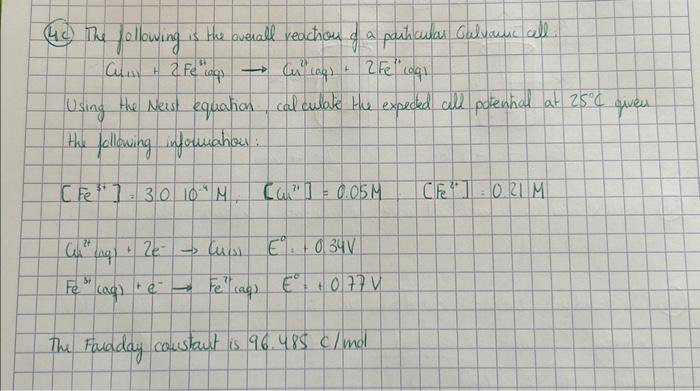 4c) The following is the overall reaction of a particular Galvanic cell:
Cu(s) + 2Fe³⁺(aq) → Cu²⁺(aq) + 2Fe²⁺(aq)
Using the Nerst equation, calculate the expected cell potential at 25°C given
the following information:
[Fe³⁺] = 3.0 10⁻⁴ M, [Cu²⁺] = 0.05M [Fe²⁺] = 0.21 M
Cu²⁺(aq) + 2e⁻ → Cu(s) E° = +0.34V
Fe³⁺(aq) + e⁻ → Fe²⁺(aq) E° = +0.77V
The Faraday constant is 96.485 C/mol